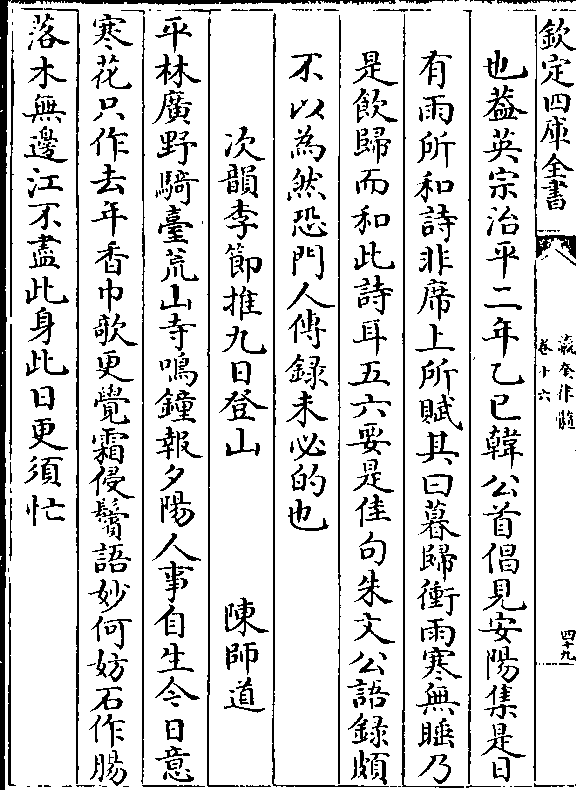 欽定四庫全書
瀛奎律髓
卷十六
四十九
也葢英宗治平二年乙巳韓公首倡見安陽集是日
有雨所和詩非席上所賦其曰暮歸衝雨寒無睡乃
是飲歸而和此詩耳五六要是佳句朱文公語錄頗
不以為然恐門人傳錄未必的也
次韻李節推九日登山
陳師道
平林廣野騎臺荒山寺鳴鐘報夕陽人事自生今日意
寒花只作去年香巾欹更覺霜侵鬢語妙何妨石作腸
落木無邊江不盡此身此日更須忙